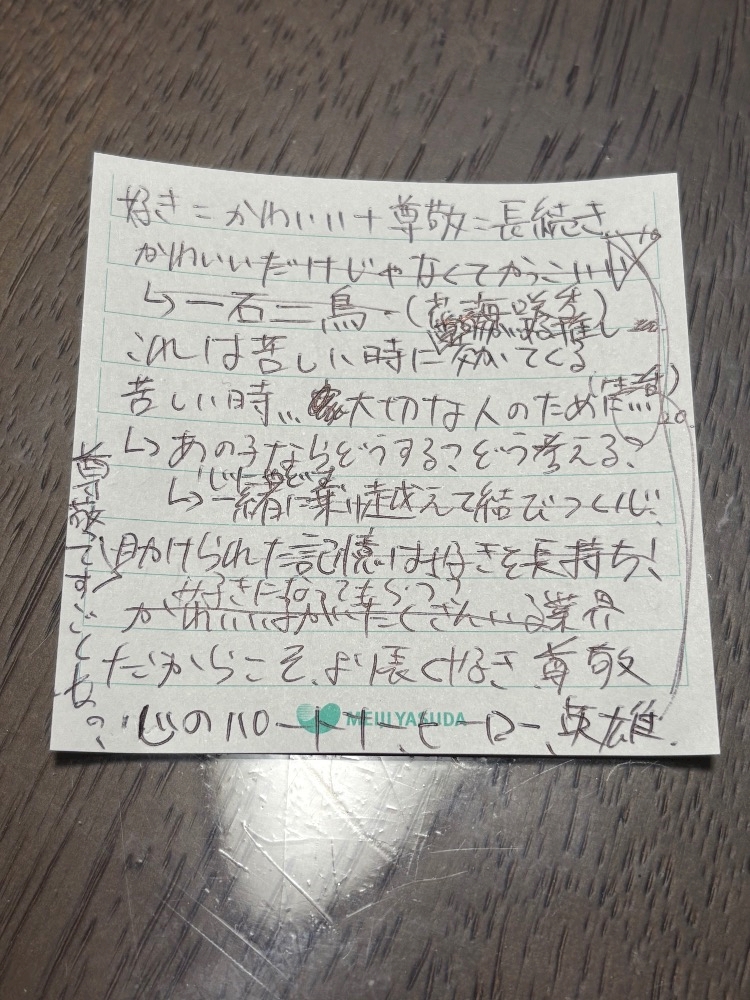 好き=かわいい+尊敬=長続き
かわいいだけじゃなくてかっこいい
↳一石二鳥・(花海咲季)
推し
これは苦しい時に効いてくる
苦しい時… 大切な人のために…
↳あの子ならどうする?どう考える?
↳一緒に乗り越えて結びつく
助けられた記憶は好きを長持ち!
好きになってもらう?
かわいいはがいたくさんいる業界
だからこそ、より長く好き 尊敬
心のパートナー、ヒーロー、英雄
MEIJI YASUDA
尊敬ってすごくね?